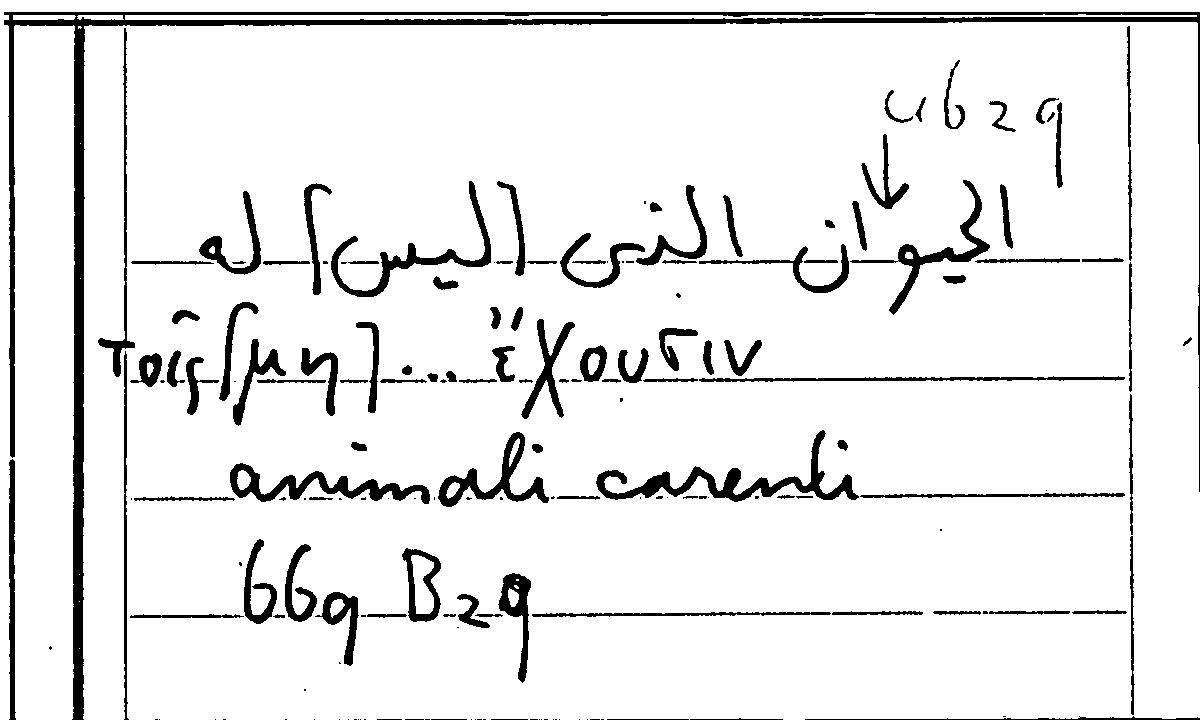 ub29
الحيوان الذى [ليس] له
τοῖς [μη] ... ἔχουσιν
animali carenti
669 B29